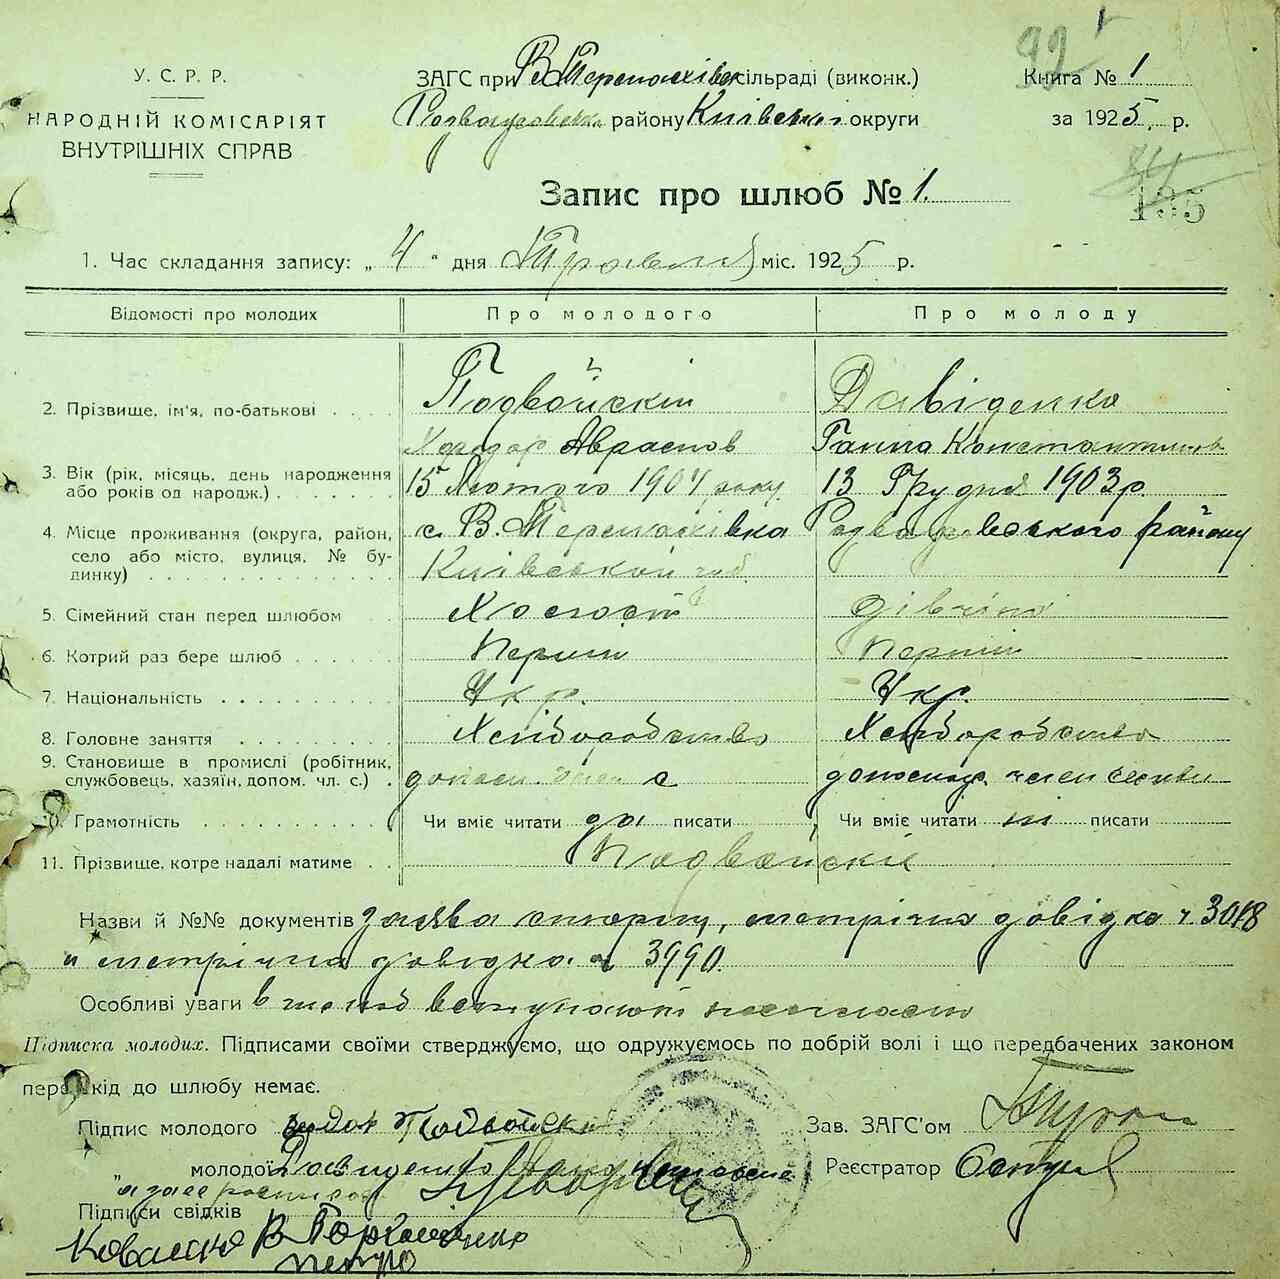 92
У. С. Р. Р.
НАРОДНІЙ КОМІСАРІЯТ
ВНУТРІШНІХ СПРАВ
ЗАГС при В. сільраді (виконк.)
району Київської округи
Книга № 1
за 1925 р.
135
Запис про шлюб № 1.
1. Час складання запису: „ 4 “ дня Травня міс. 1925 р.
Відомості про молодих Про молодого Про молоду
2. Прізвище, ім'я, по-батькові Подвойскій Давіденко
Аврамов Ганна Константинов
3. Вік (рік, місяць, день народження 15 Лютого 1904 року 13 Грудня 1903 р.
або років од народж.)
4. Місце проживання (округа, район, с. В. району
село або місто, вулиця, № бу- Київськой губ.
динку)
5. Сімейний стан перед шлюбом Холост дівчіна
6. Котрий раз бере шлюб Перши Перши
7. Національність Укр. Укр.
8. Головне заняття Хліборобство Хліборобство
9. Становище в промислі (робітник,
службовець, хазяїн, допом. чл. с.) член
10. Грамотність Чи вміє читати да писати Чи вміє читати ні писати
11. Прізвище, котре надалі матиме Подвойскіє
Назви й №№ документів заява сторон, метрічна довідка ч. 3018
и метрічна довідка ч 3990.
Особливі уваги в шлюб вступають
Підписка молодих. Підписами своїми стверджуємо, що одружуємось по добрій волі і що передбачених законом
перешкід до шлюбу немає.
Підпис молодого Подвойски Зав. ЗАГС'ом
„ молодої Давиденко Реєстратор
Підписи свідків
Коваленко В
Петро